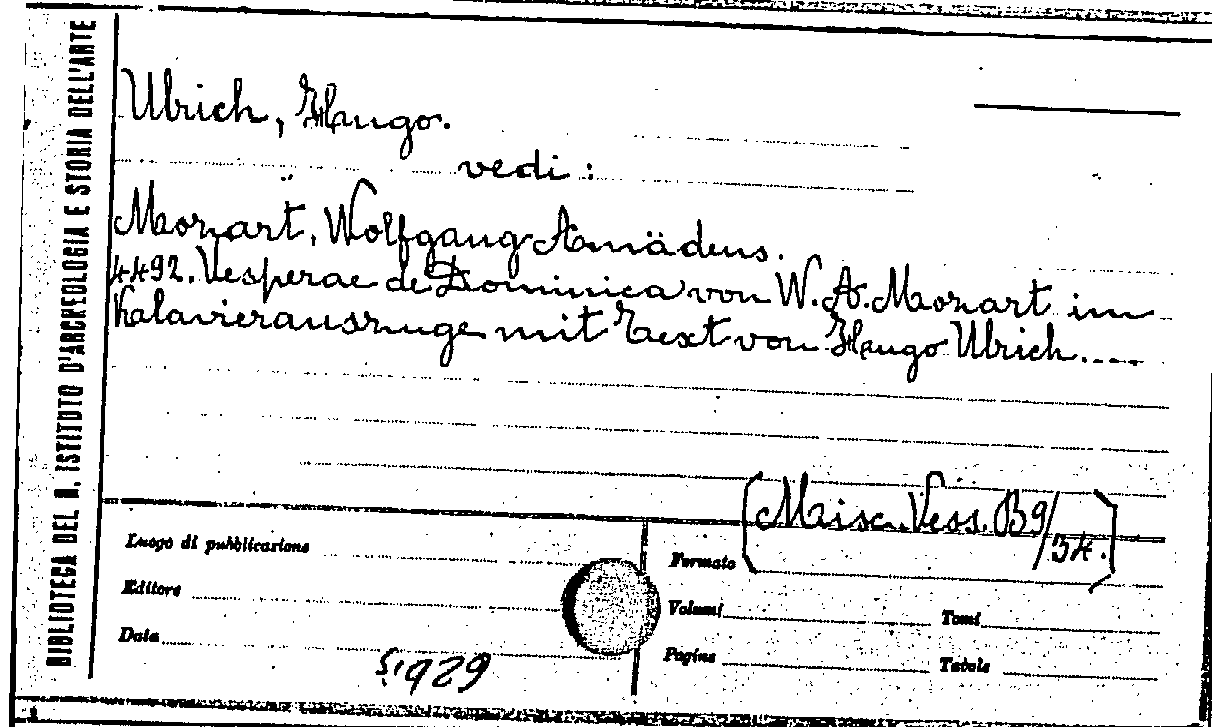 BIBLIOTECA DEL R. ISTITUTO D'ARCHEOLOGIA E STORIA DELL'ARTE
Ulrich, Hugo.
vedi:
Mozart, Wolfgang Amädeus.
4492. Vesperae de Dominica von W. A. Mozart im
Kalavierauszuge mit Text von Hugo Ulrich....
(Misc. Vess. B9/34.)
Luogo di pubblicazione
Formato
Editore
Volumi
Tomi
Data
Pagine
Tavole